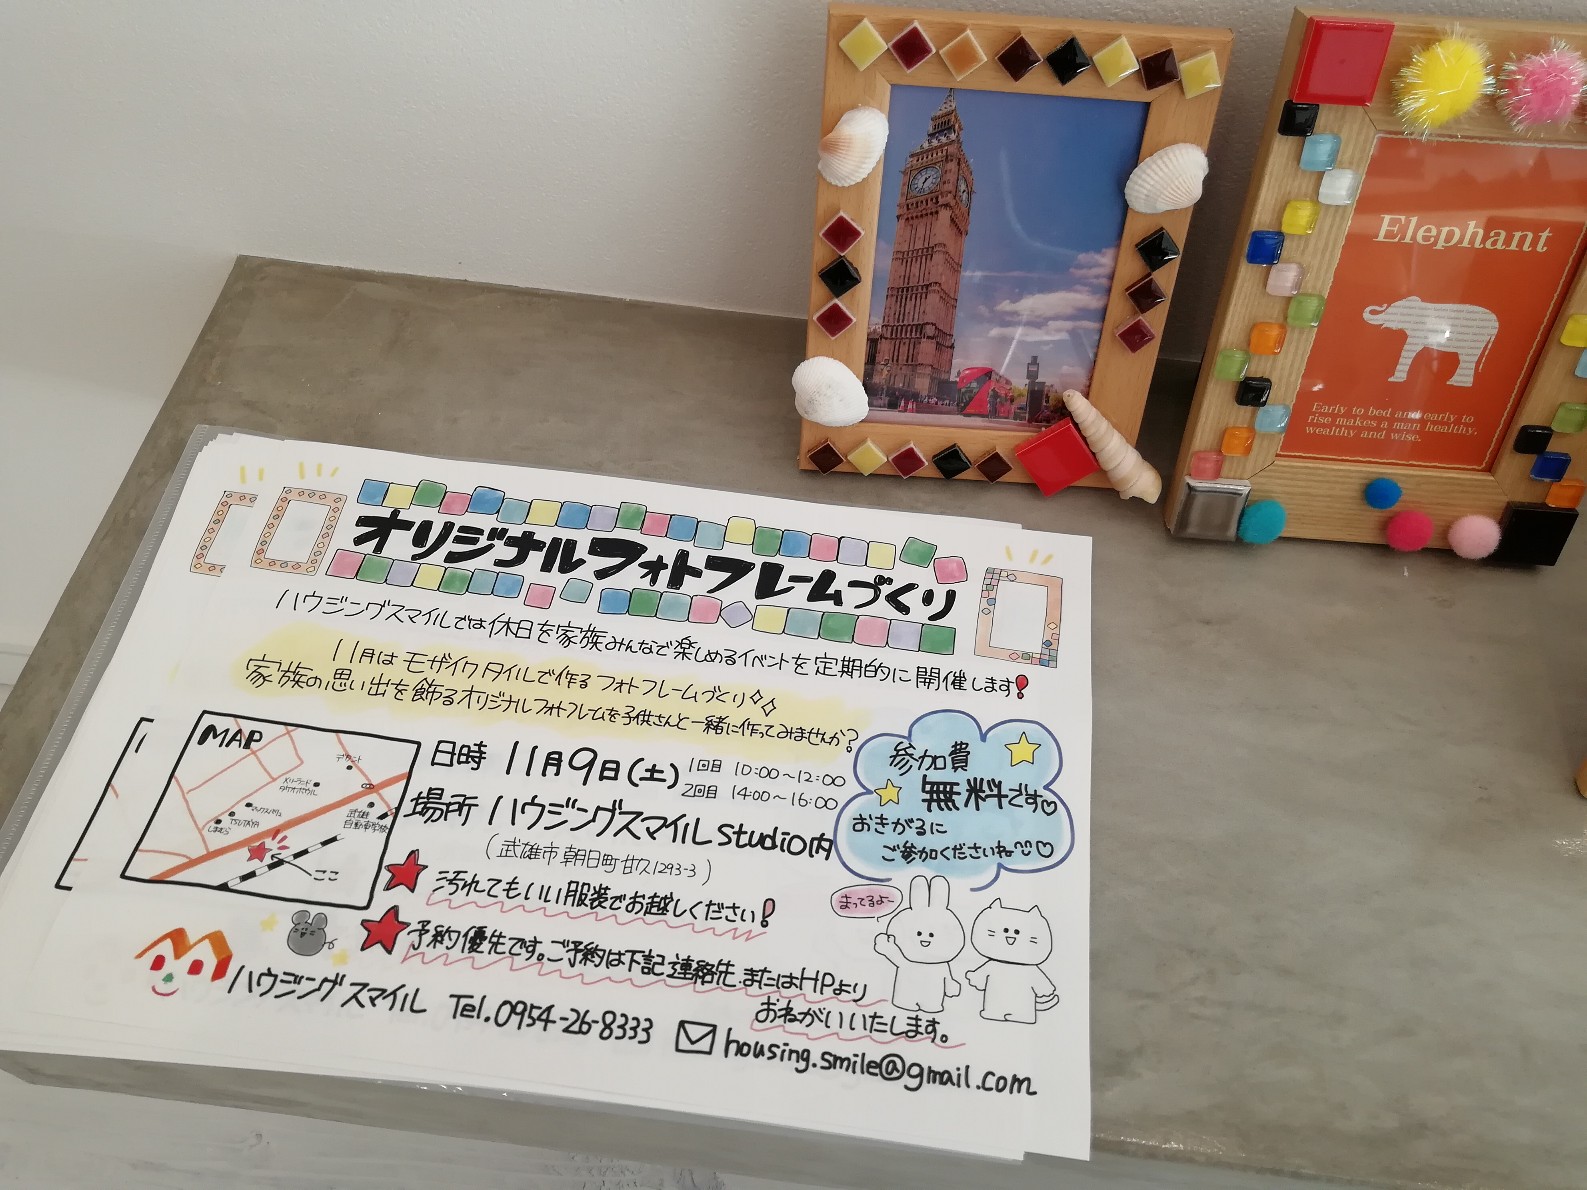 Elephant
Early to bed and early to
rise makes a man healthy,
wealthy and wise.
オリジナルフォトフレームづくり
ハウジングスマイルでは休日を家族みんなで楽しめるイベントを定期的に開催します!
11月はモザイクタイルで作るフォトフレームづくり
家族の思い出を飾るオリジナルフォトフレームを子供さんと一緒に作ってみませんか?
MAP
TSUTAYA
しまむら
武雄
自動車学校
ここ
日時 11月9日(土) 1回目 10:00〜12:00
2回目 14:00〜16:00
場所 ハウジングスマイルstudio内
(武雄市朝日町甘久1293-3)
参加費
無料です♡
おきがるに
ご参加くださいね♡
汚れてもいい服装でお越しください!
まってるよ〜
予約優先です。ご予約は下記連絡先またはHPより
おねがいいたします。
ハウジングスマイル Tel.0954-26-8333
housing.smile@gmail.com